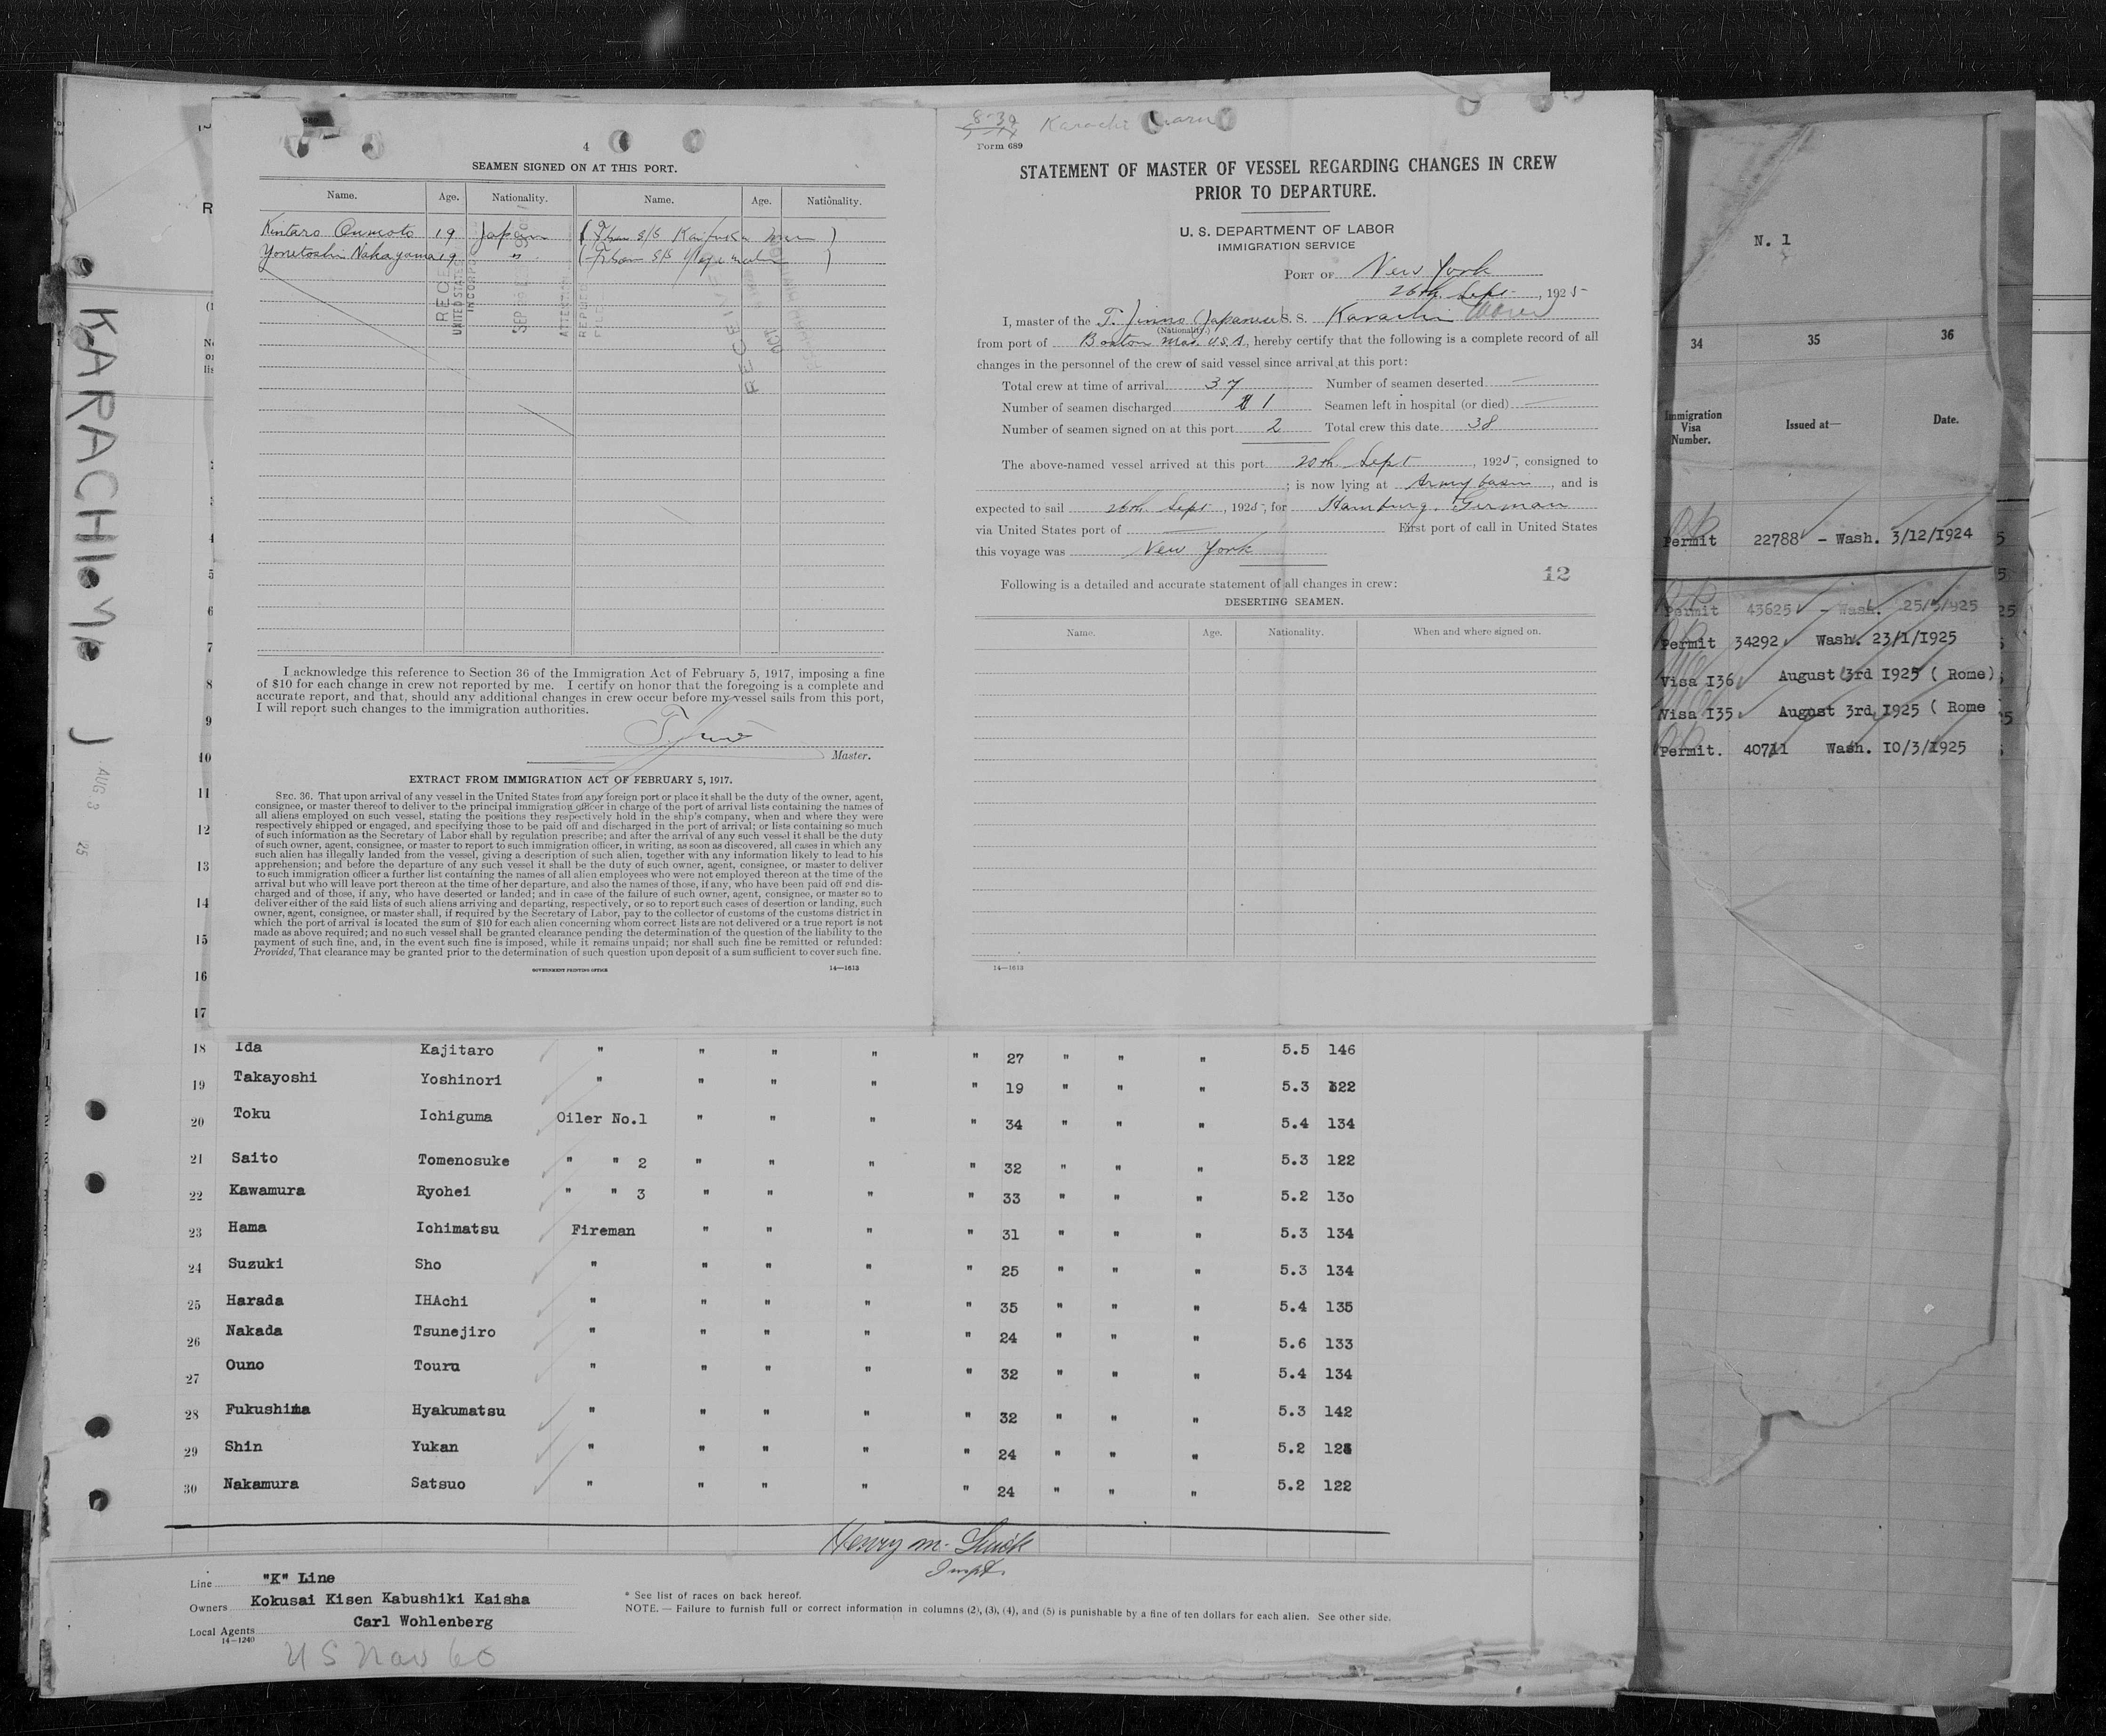 KARACHI
AUG 3 25
4
SEAMEN SIGNED ON AT THIS PORT.
Name. Age. Nationality. Name. Age. Nationality.
Kintaro Oumoto 19 Japan
Yonetoshi Nakayama 19 "
RECEIVED
I acknowledge this reference to Section 36 of the Immigration Act of February 5, 1917, imposing a fine
of $10 for each change in crew not reported by me. I certify on honor that the foregoing is a complete and
accurate report, and that, should any additional changes in crew occur before my vessel sails from this port,
I will report such changes to the immigration authorities.
Master.
EXTRACT FROM IMMIGRATION ACT OF FEBRUARY 5, 1917.
SEC. 36. That upon arrival of any vessel in the United States from any foreign port or place it shall be the duty of the owner, agent,
consignee, or master thereof to deliver to the principal immigration officer in charge of the port of arrival lists containing the names of
all aliens employed on such vessel, stating the positions they respectively hold in the ship's company, when and where they were
respectively shipped or engaged, and specifying those to be paid off and discharged in the port of arrival; or lists containing so much
of such information as the Secretary of Labor shall by regulation prescribe; and after the arrival of any such vessel it shall be the duty
of such owner, agent, consignee, or master to report to such immigration officer, in writing, as soon as discovered, all cases in which any
such alien has illegally landed from the vessel, giving a description of such alien, together with any information likely to lead to his
apprehension; and before the departure of any such vessel it shall be the duty of such owner, agent, consignee, or master to deliver
to such immigration officer a further list containing the names of all alien employees who were not employed thereon at the time of the
arrival but who will leave port thereon at the time of her departure, and also the names of those, if any, who have been paid off and dis-
charged and of those, if any, who have deserted or landed; and in case of the failure of such owner, agent, consignee, or master so to
deliver either of the said lists of such aliens arriving and departing, respectively, or so to report such cases of desertion or landing, such
owner, agent, consignee, or master shall, if required by the Secretary of Labor, pay to the collector of customs of the customs district in
which the port of arrival is located the sum of $10 for each alien concerning whom correct lists are not delivered or a true report is not
made as above required; and no such vessel shall be granted clearance pending the determination of the question of the liability to the
payment of such fine, and, in the event such fine is imposed, while it remains unpaid; nor shall such fine be remitted or refunded:
Provided, That clearance may be granted prior to the determination of such question upon deposit of a sum sufficient to cover such fine.
GOVERNMENT PRINTING OFFICE 14—1613
Karachi Maru
Form 689
STATEMENT OF MASTER OF VESSEL REGARDING CHANGES IN CREW
PRIOR TO DEPARTURE.
U. S. DEPARTMENT OF LABOR
IMMIGRATION SERVICE
PORT OF New York
26th. Sept. , 1925
I, master of the T. Jinno (Japanese S. S. Karachi Maru
(Nationality.)
from port of Boston Mas. U.S.A, hereby certify that the following is a complete record of all
changes in the personnel of the crew of said vessel since arrival at this port:
Total crew at time of arrival 37 Number of seamen deserted —
Number of seamen discharged 1 Seamen left in hospital (or died) —
Number of seamen signed on at this port 2 Total crew this date 38
The above-named vessel arrived at this port 20th. Sept , 1925, consigned to
; is now lying at Army basin , and is
expected to sail 26th. Sept , 1925, for Hamburg. German
via United States port of — First port of call in United States
this voyage was New York
Following is a detailed and accurate statement of all changes in crew: 12
DESERTING SEAMEN.
Name. Age. Nationality. When and where signed on.
14—1613
N. 1
34 35 36
Immigration Visa Number. Issued at— Date.
Permit 22788 - Wash. 3/12/1924
Permit 43625 - Wash. 25/5/925
Permit 34292 Wash. 23/1/1925
Visa I36 August 3rd 1925 ( Rome)
Visa I35 August 3rd 1925 ( Rome
Permit. 40711 Wash. 10/3/1925
4
5
6
7
8
9
10
11
12
13
14
15
16
17
18 Ida Kajitaro " " " " " 27 " " " 5.5 146
19 Takayoshi Yoshinori " " " " " 19 " " " 5.3 122
20 Toku Ichiguma Oiler No.1 " " " " 34 " " " 5.4 134
21 Saito Tomenosuke " " 2 " " " " 32 " " " 5.3 122
22 Kawamura Ryohei " " 3 " " " " 33 " " " 5.2 13o
23 Hama Ichimatsu Fireman " " " " 31 " " " 5.3 134
24 Suzuki Sho " " " " " 25 " " " 5.3 134
25 Harada IHAchi " " " " " 35 " " " 5.4 135
26 Nakada Tsunejiro " " " " " 24 " " " 5.6 133
27 Ouno Touru " " " " " 32 " " " 5.4 134
28 Fukushima Hyakumatsu " " " " " 32 " " " 5.3 142
29 Shin Yukan " " " " " 24 " " " 5.2
30 Nakamura Satsuo " " " " " 24 " " " 5.2 122
Henry M.
Inspt.
Line "K" Line
Owners Kokusai Kisen Kabushiki Kaisha
Local Agents Carl Wohlenberg
14—1240
* See list of races on back hereof.
NOTE. — Failure to furnish full or correct information in columns (2), (3), (4), and (5) is punishable by a fine of ten dollars for each alien. See other side.